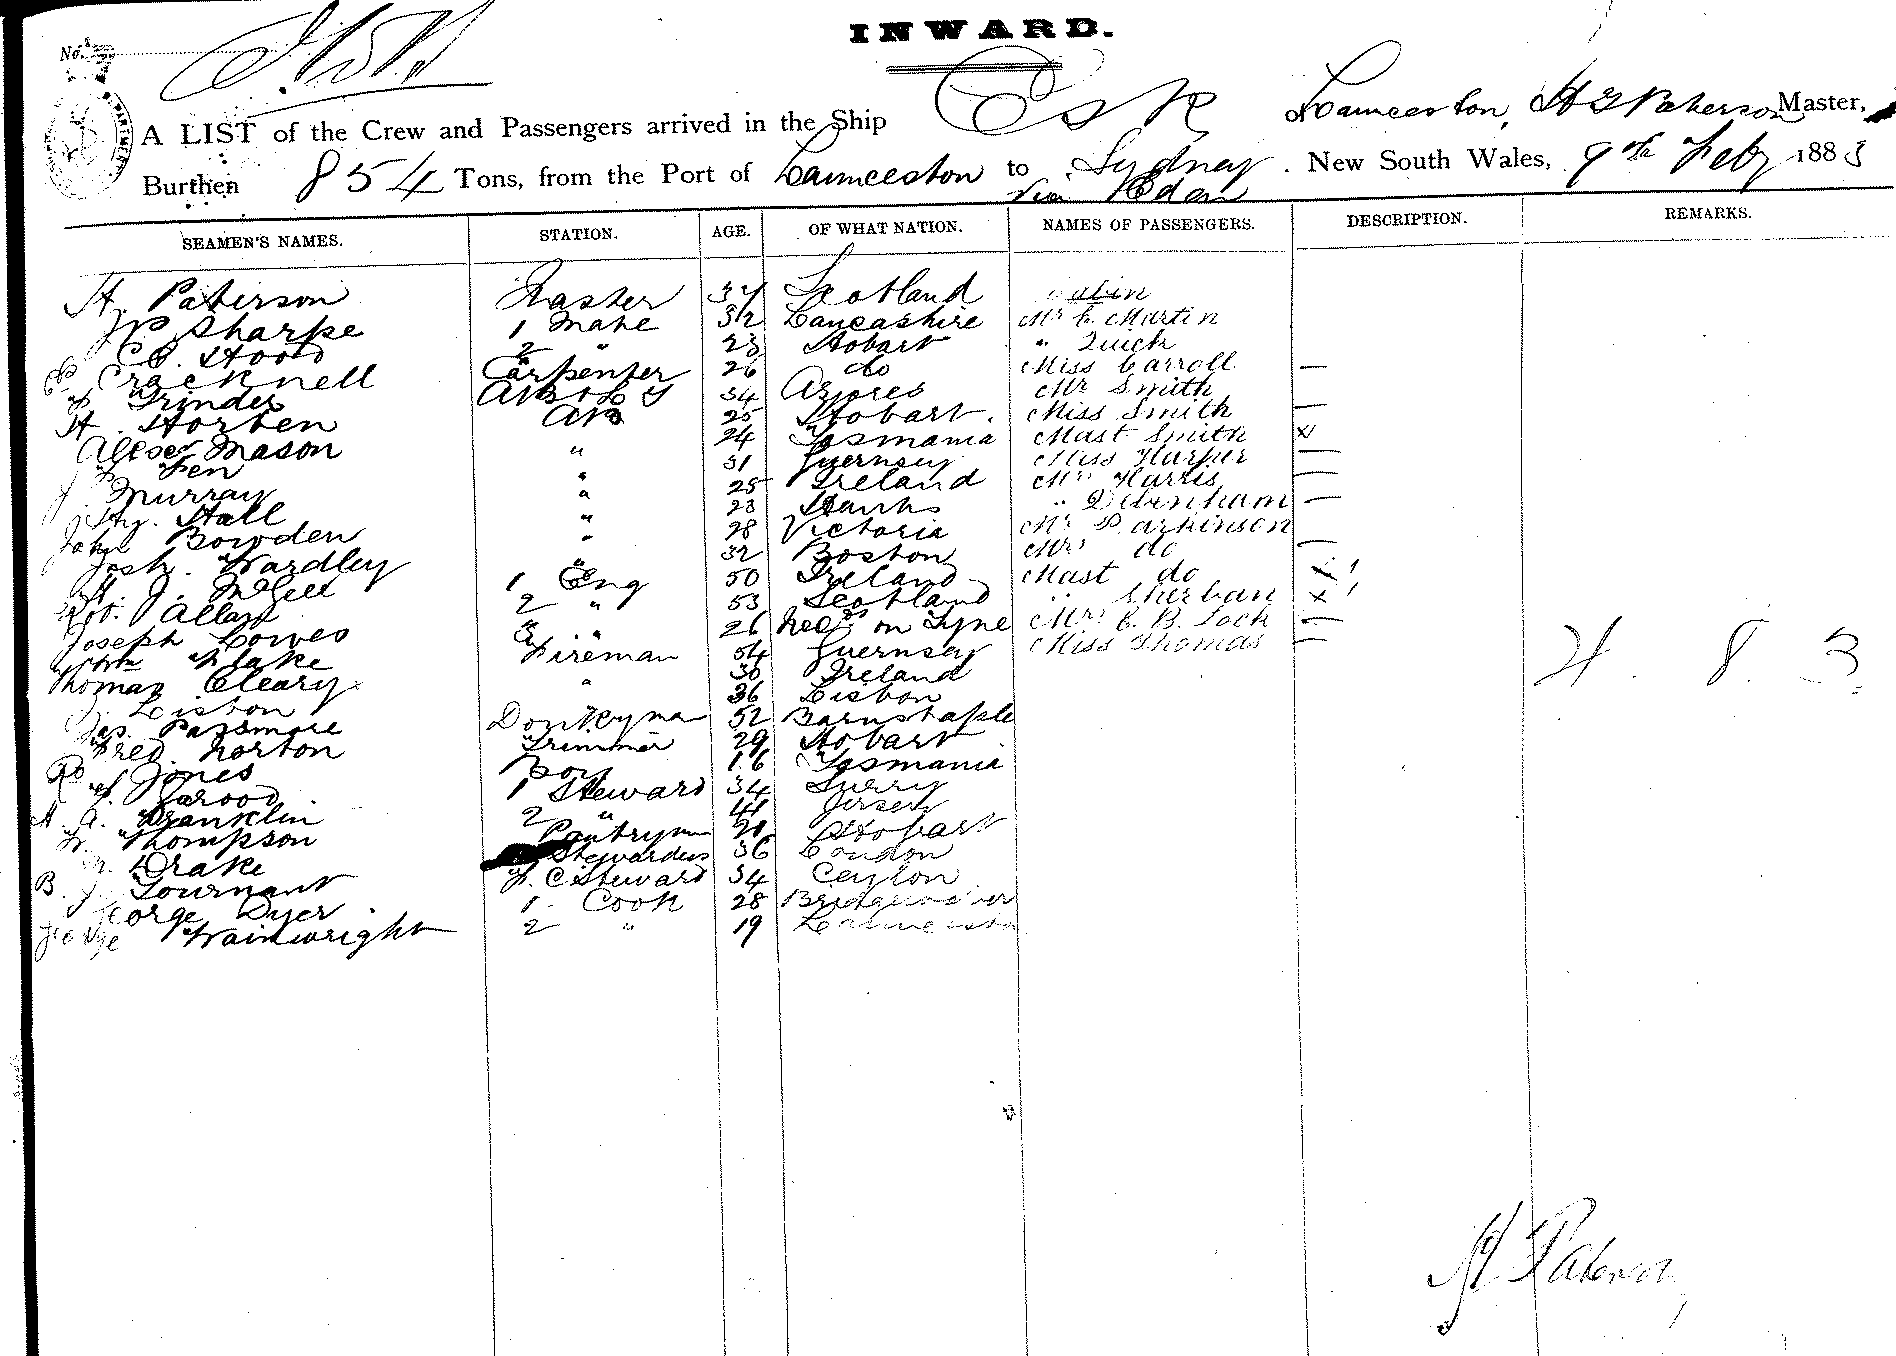 INWARD.
No.
A LIST of the Crew and Passengers arrived in the Ship Esk Launceston, Paterson Master,
Burthen 854 Tons, from the Port of Launceston to Sydney New South Wales, 9th Feby 1883
via Eden
SEAMEN'S NAMES. STATION. AGE. OF WHAT NATION. NAMES OF PASSENGERS. DESCRIPTION. REMARKS.
H. Paterson Master Scotland Cabin
Sharpe 1 Mate 32 Lancashire Mr C Martin
Hood 2 " 23 Hobart " Quick
Cracknell Carpenter 26 do Miss Carroll —
Grinder 34 Azores Mr Smith
H. Horten AB 25 Hobart. Miss Smith —
Mason 24 Tasmania Mast Smith x
Fen " 31 Guernsey Miss Harper —
J. Murray " 25 Ireland Mr Harris —
Hy. Hall " 23 Hants " Debenham —
John Bowden " 28 Victoria Mr Parkinson
Josh. Wardley " 32 Boston Mrs do —
McGill 1 Eng 50 Ireland Mast do x
Rob. Allan 2 " 53 Scotland " x
Joseph Lowes 3 " 26 on Tyne C. B. Lock —
Flake Fireman 54 Guernsey Miss Thomas —
Thomas Cleary " 30 Ireland
J. Lisbon 36 Lisbon
Jas. Passmore Donkyman 52 Barnstaple
Fred. Norton Trimmer 29 Hobart
Jones Boy 16 Tasmania
1 Steward 34 Surry
A. Franklin 2 " Jersey
Thompson Pantrym Hobart
Drake Stewardess 36 London
B. J. Tournant F. C Steward 34 Ceylon
George Dyer. 1 Cook 28 Bridgwater
George Wainwright 2 " 19 Launcesto
4. 8. 3.
H Paterson